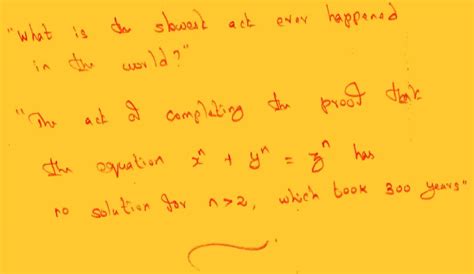 "What is the slowest act ever happened
in the world?"
"The act of completing the proof that
the equation xⁿ + yⁿ = zⁿ has
no solution for n>2, which took 300 years"